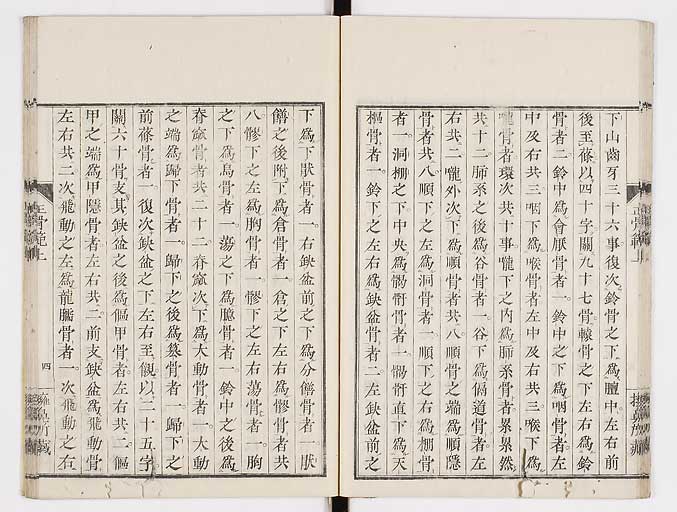 下山齒牙三十六事復次鈴骨之下爲膻中左右前
後至篠以四十字關九十七骨轅骨之下左右爲鈴
骨者二鈴中爲會厭骨者一鈴中之下爲咽骨者左
中及右共三咽下爲喉骨者左中及右共三喉下爲
嚨骨者環次共十事嚨下之內爲肺系骨者累累然
共十二肺系之後爲谷骨者一谷下爲偪道骨者左
右共二嚨外次下爲順骨者共八順骨之端爲順隱
骨者共八順下之左爲洞骨者一順下之右爲棚骨
者一洞棚之下中央爲䯏骬骨者一䯏骬直下爲天
樞骨者一鈴下之左右爲缺盆骨者二左缺盆前之
下爲下猒骨者一右缺盆前之下爲分饍骨者一猒
饍之後附下爲倉骨者一倉之下左右爲髎骨者共
八髎下之左爲胸骨者一髎下之左右蕩骨者一胸
之下爲烏骨者一蕩之下爲臆骨者一鈴中之後爲
脊窳骨者共二十二脊窳次下爲大動骨者一大動
之端爲歸下骨者一歸下之後爲篡骨者一歸下之
前篠骨者一復次缺盆之下左右至襯以二十五字
關六十骨支其缺盆之後爲傴甲骨者左右共二傴
甲之端爲甲隱骨者左右共二前支缺盆爲飛動骨
左右共二次飛動之左爲龍臑骨者一次飛動之右
正骨範上
四